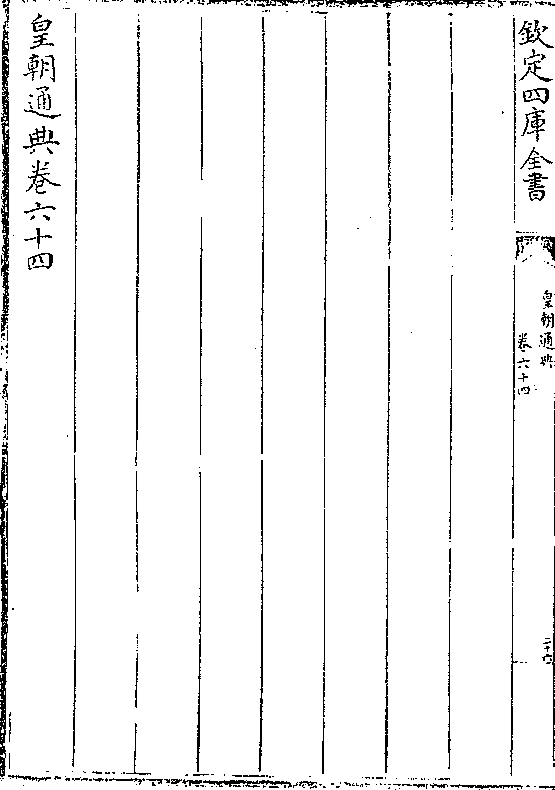 欽定四庫全書
皇朝通典
卷六十四
二十六
皇朝通典卷六十四